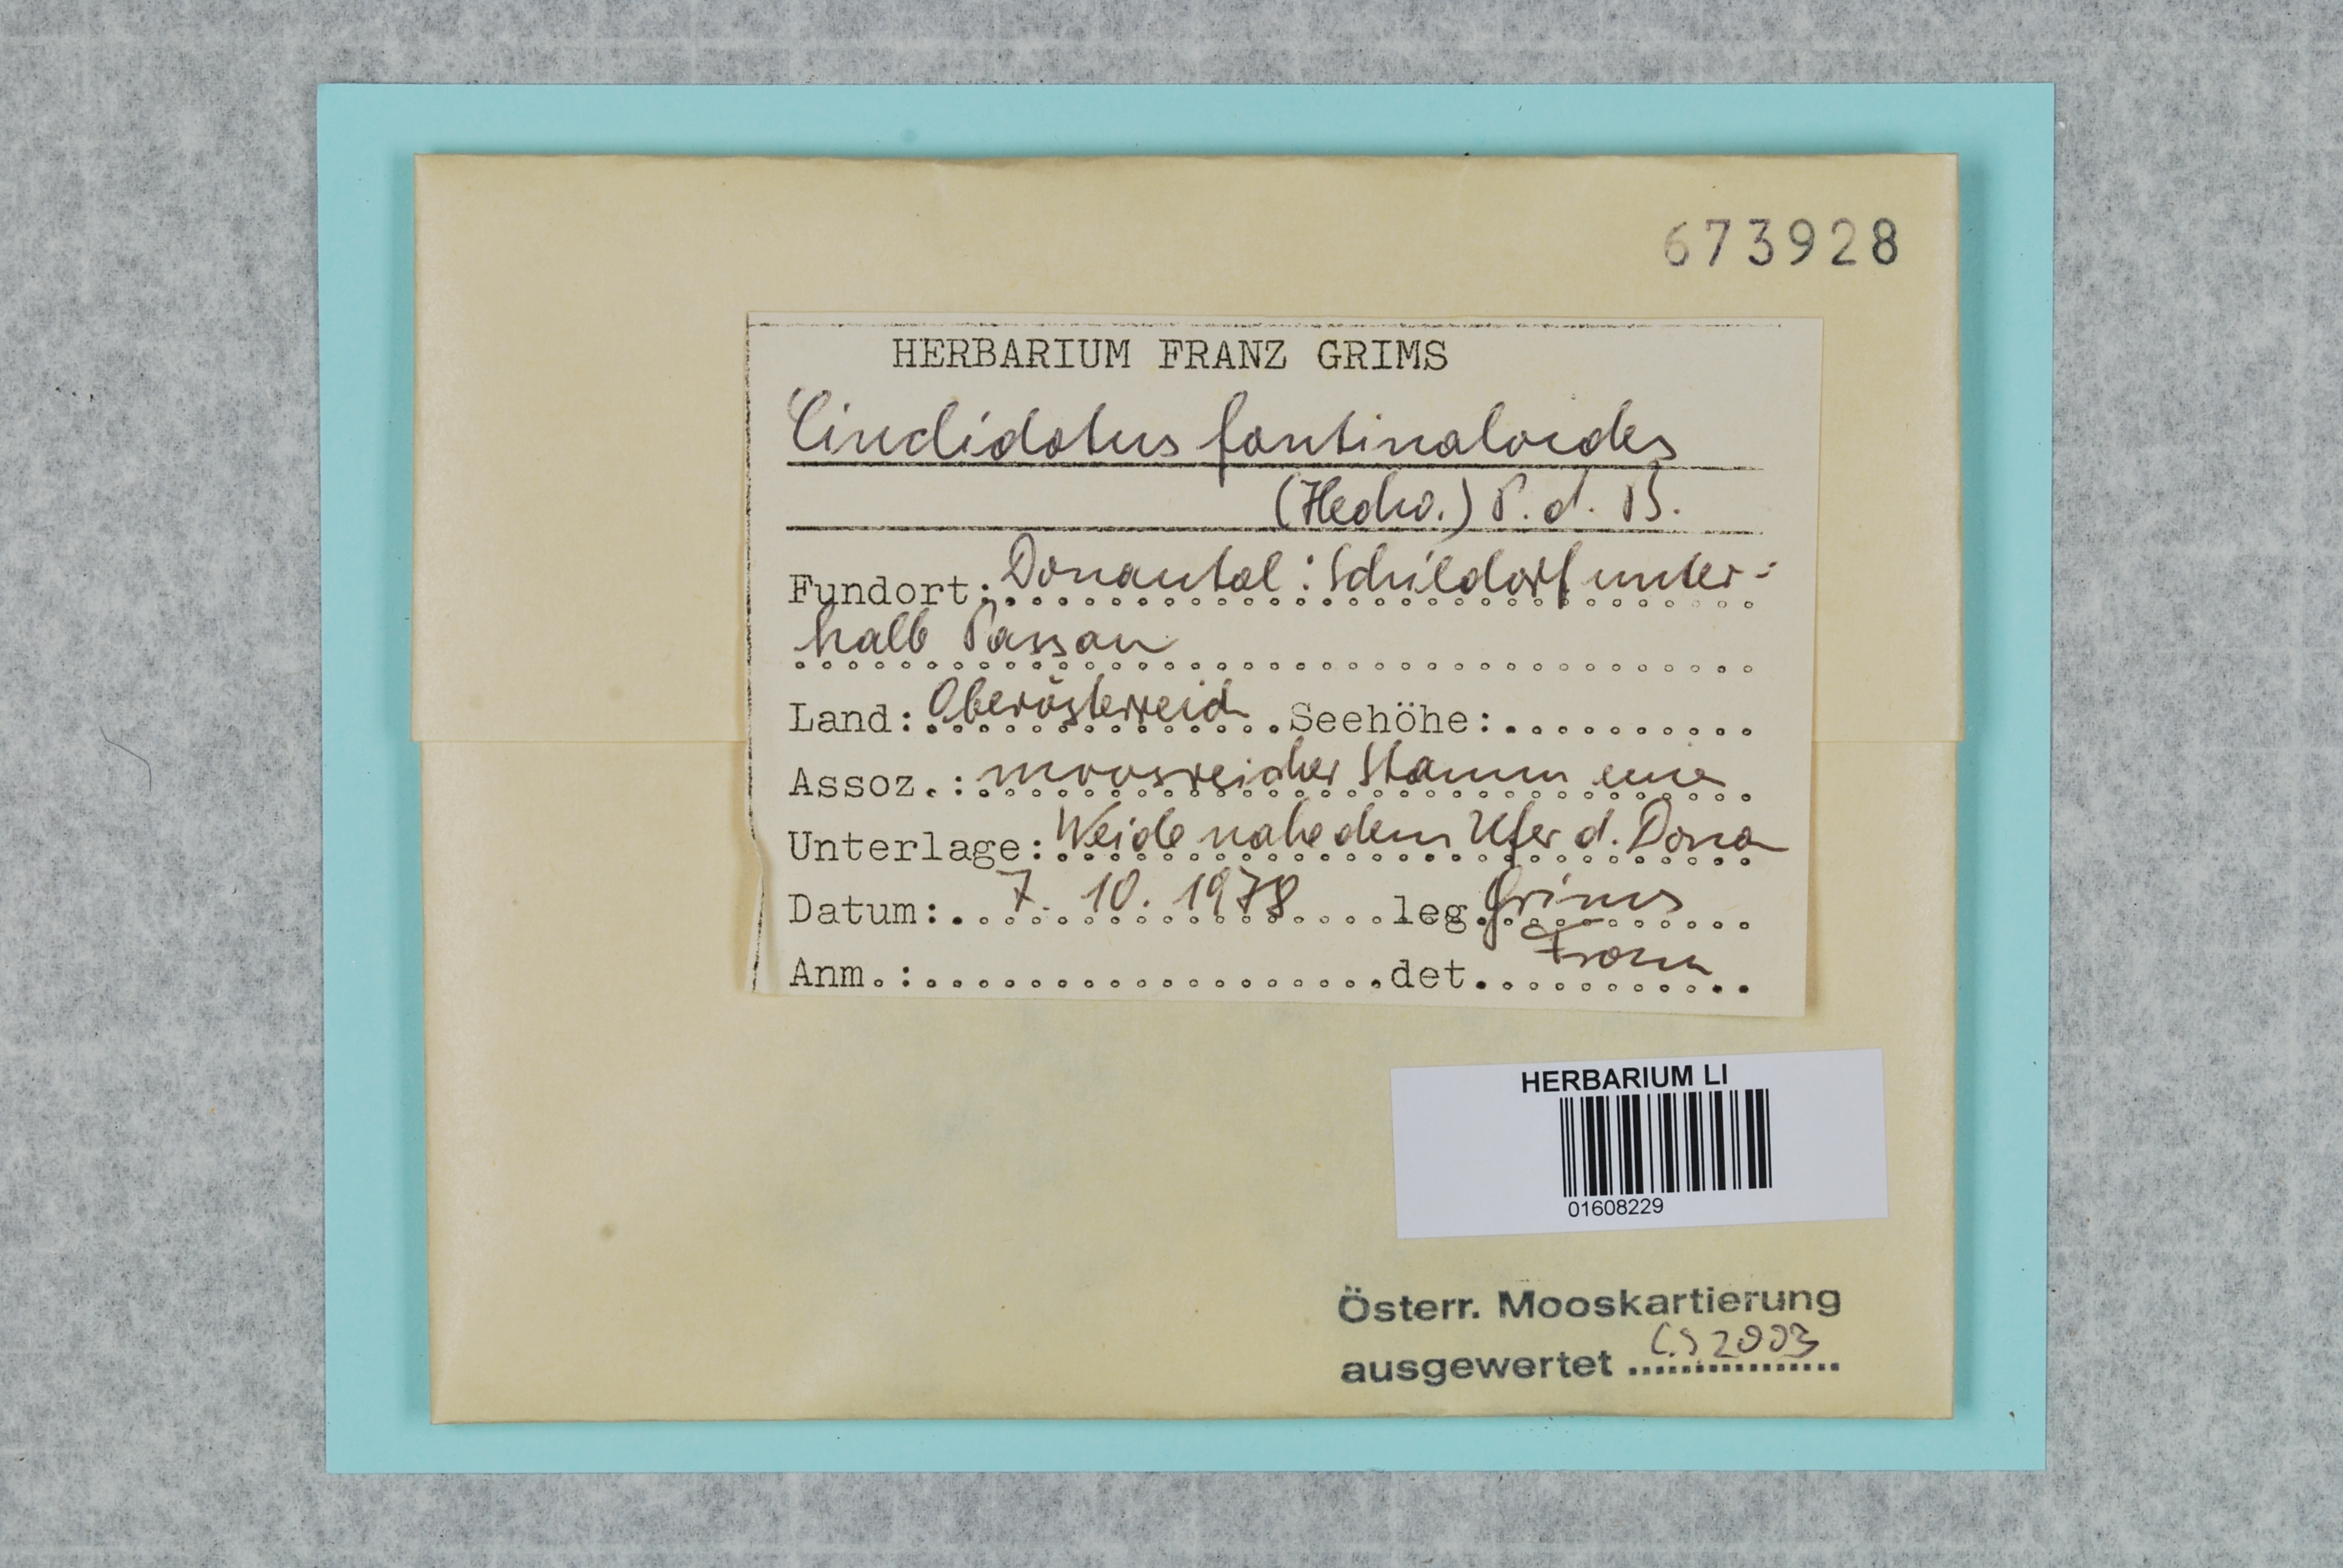 673928
HERBARIUM FRANZ GRIMS
Cinclidotus fontinaloides
(Hedw.) P. d. B.
Fundort: Donautal: Schildorf unter-
halb Passau
Land: Oberösterreich Seehöhe:
Assoz.: moosreicher Stamm einer
Unterlage: Weide nahe dem Ufer d. Donau
Datum: 7. 10. 1978 leg. Grims
Anm.: det. Franz
HERBARIUM LI
01608229
Österr. Mooskartierung
ausgewertet CS 2003